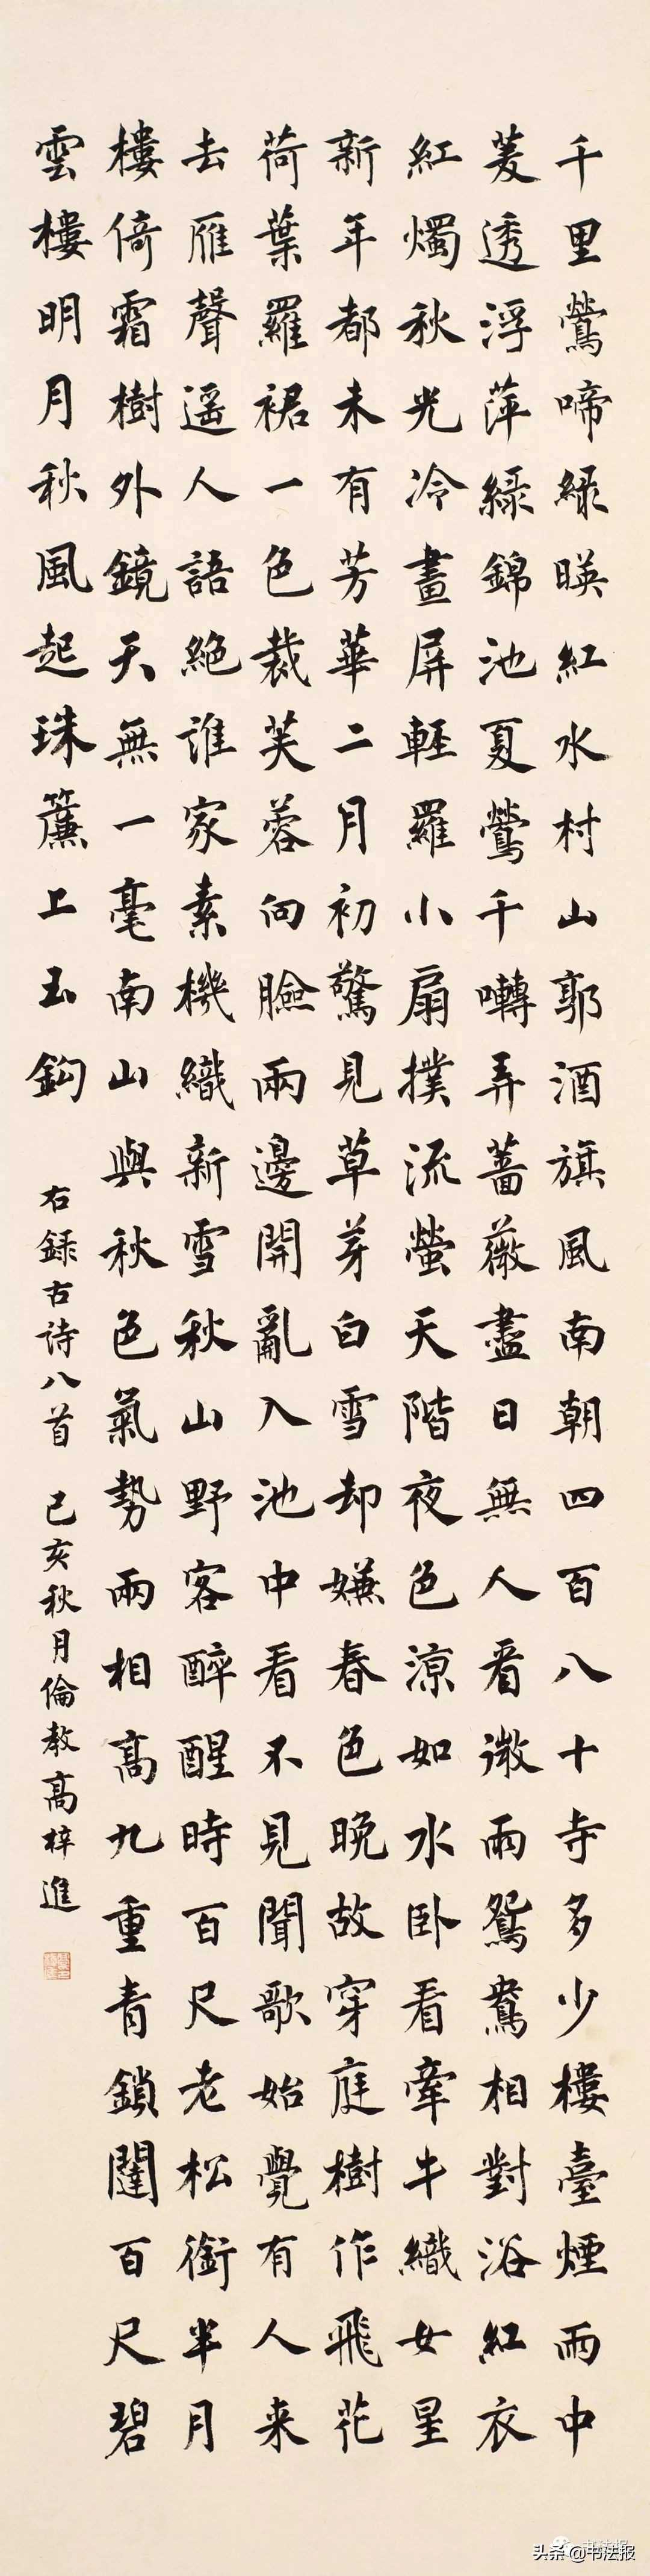 千里鶯啼緑暎紅水村山郭酒旗風南朝四百八十寺多少樓臺煙雨中
菱透浮萍緑錦池夏鶯千囀弄薔薇盡日無人看微雨鴛鴦相對浴紅衣
紅燭秋光冷畫屏輕羅小扇撲流螢天階夜色涼如水卧看牽牛織女星
新年都未有芳華二月初驚見草芽白雪却嫌春色晚故穿庭樹作飛花
荷葉羅裙一色裁芙蓉向臉兩邊開亂入池中看不見聞歌始覺有人来
去雁聲遥人語絶誰家素機織新雪秋山野客醉醒時百尺老松銜半月
樓倚霜樹外鏡天無一毫南山與秋色氣勢兩相高九重青鎖闥百尺碧
雲樓明月秋風起珠簾上玉鈎
右録古詩八首 己亥秋月倫教高梓進
头条 @书法报